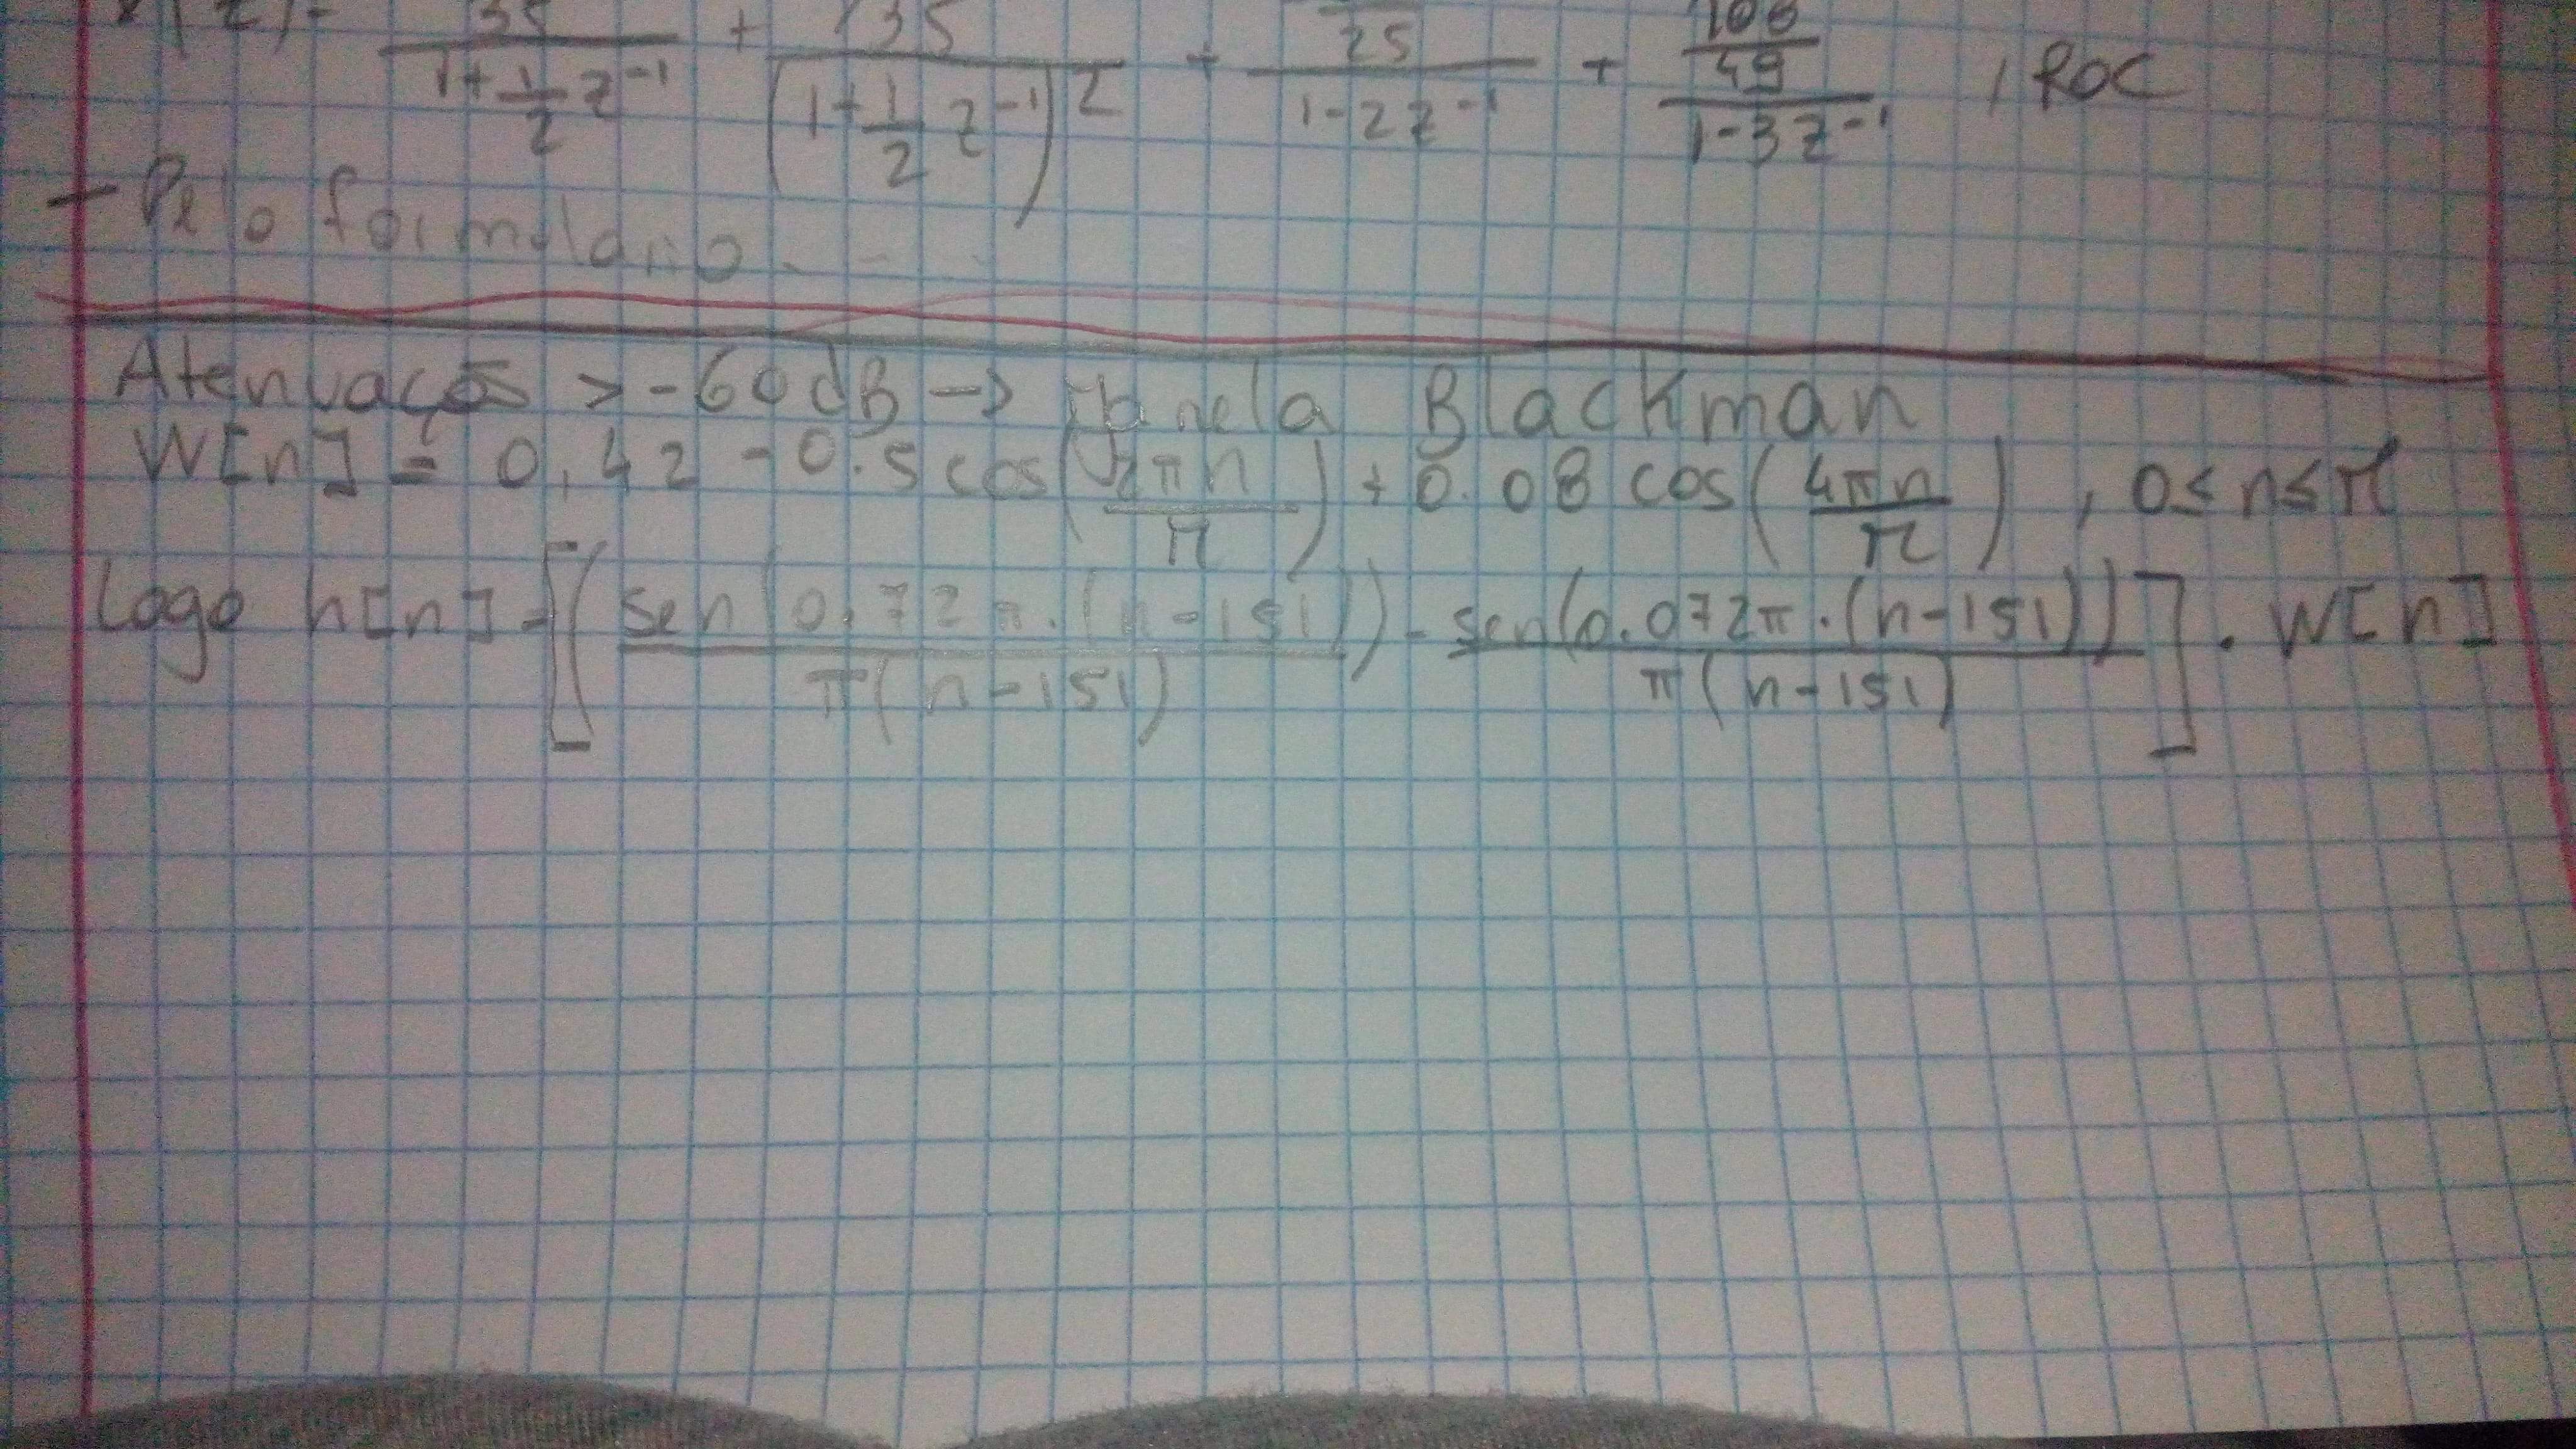 X(z) = 35/(1+1/2 z^-1) + 135/(1+1/2 z^-1)^2 + /25/(1-2z^-1) + 108/49/(1-3z^-1) , ROC
- Pelo formulario. - -
Atenuação > -60dB -> janela Blackman
W[n] = 0,42 - 0.5 cos(2πn/M) + 0.08 cos(4πn/M) , 0≤n≤M
Logo h[n] = [(sen(0,72π.(n-151))/π(n-151)) - sen(0.072π.(n-151))/π(n-151)] . W[n]